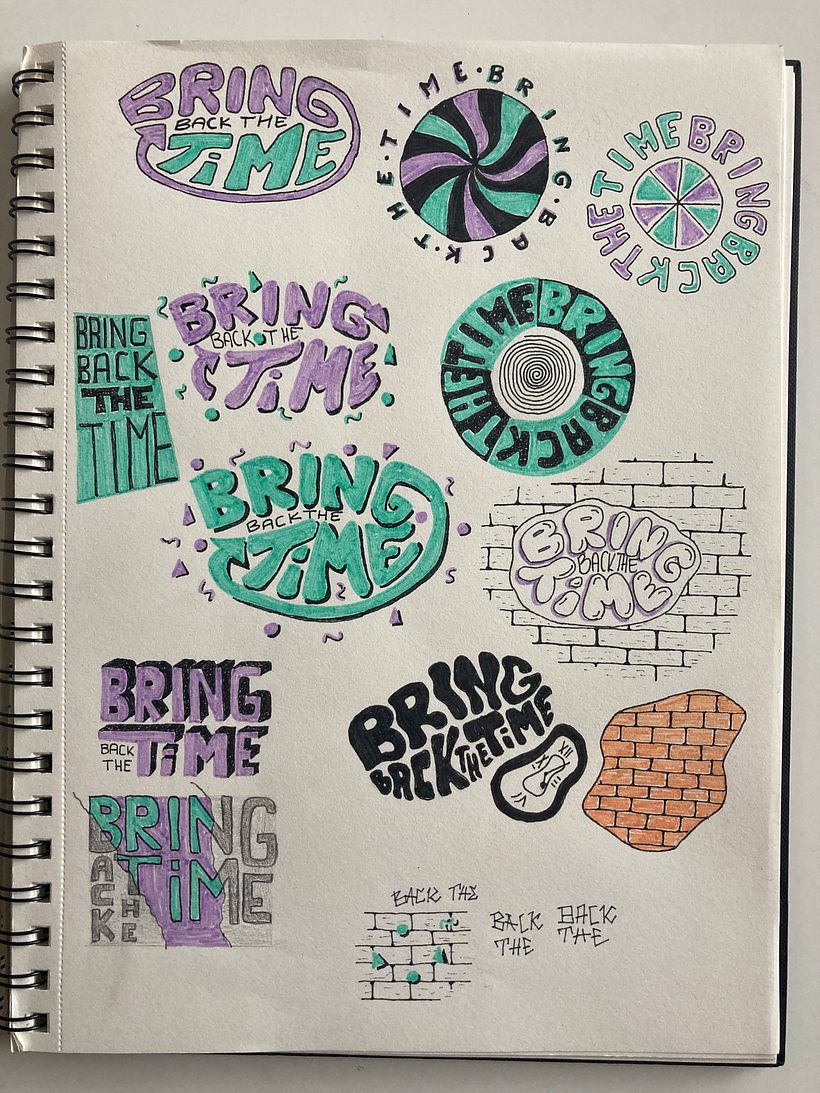 BRING
BACK THE
TIME
THE·TIME·BRING·BACK·
TIME BRING BACK THE
BRING
BACK
THE
TIME
BRING
BACK THE
TIME
TIME BRING BACK THE
BRING
BACK THE
TIME
BRING
BACK THE
TIME
BRING
BACK
THE
TIME
BRING
BACK THE TIME
XII
BRING
BACK
THE
TIME
BACK THE
BACK
THE
BACK
THE